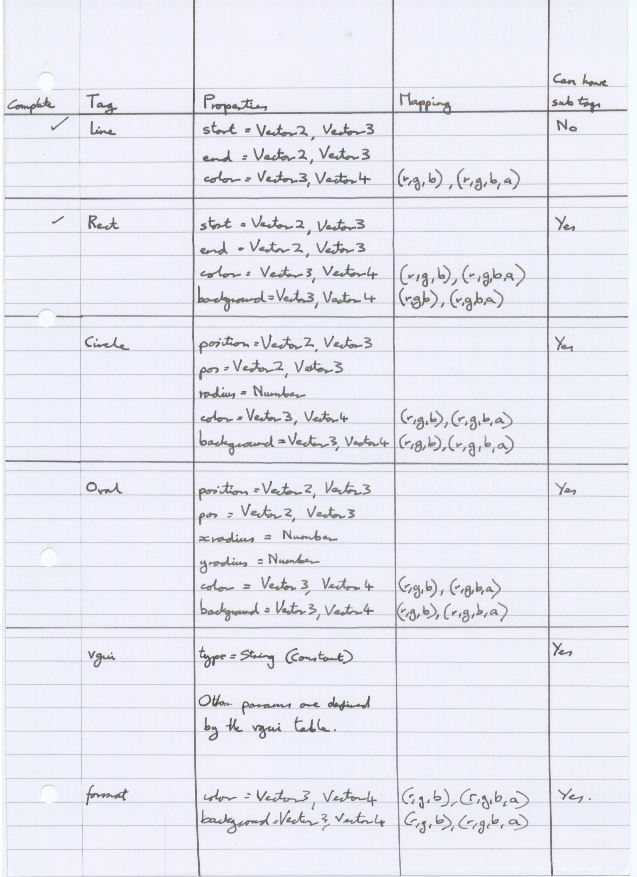 Complete Tag Properties Mapping Can have sub tags
✓ Line start = Vector2, Vector3 No
end = Vector2, Vector3
color = Vector3, Vector4 (r,g,b), (r,g,b,a)
✓ Rect start = Vector2, Vector3 Yes
end = Vector2, Vector3
color = Vector3, Vector4 (r,g,b), (r,g,b,a)
background = Vector3, Vector4 (rgb), (r,g,b,a)
Circle position = Vector2, Vector3 Yes
pos = Vector2, Vector3
radius = Number
color = Vector3, Vector4 (r,g,b), (r,g,b,a)
background = Vector3, Vector4 (r,g,b), (r,g,b,a)
Oval position = Vector2, Vector3 Yes
pos = Vector2, Vector3
xradius = Number
yradius = Number
color = Vector3, Vector4 (r,g,b), (r,g,b,a)
background = Vector3, Vector4 (r,g,b), (r,g,b,a)
vgui type = String (Constant) Yes
Other params are defined
by the vgui table.
format color = Vector3, Vector4 (r,g,b), (r,g,b,a) Yes.
background = Vector3, Vector4 (r,g,b), (r,g,b,a)